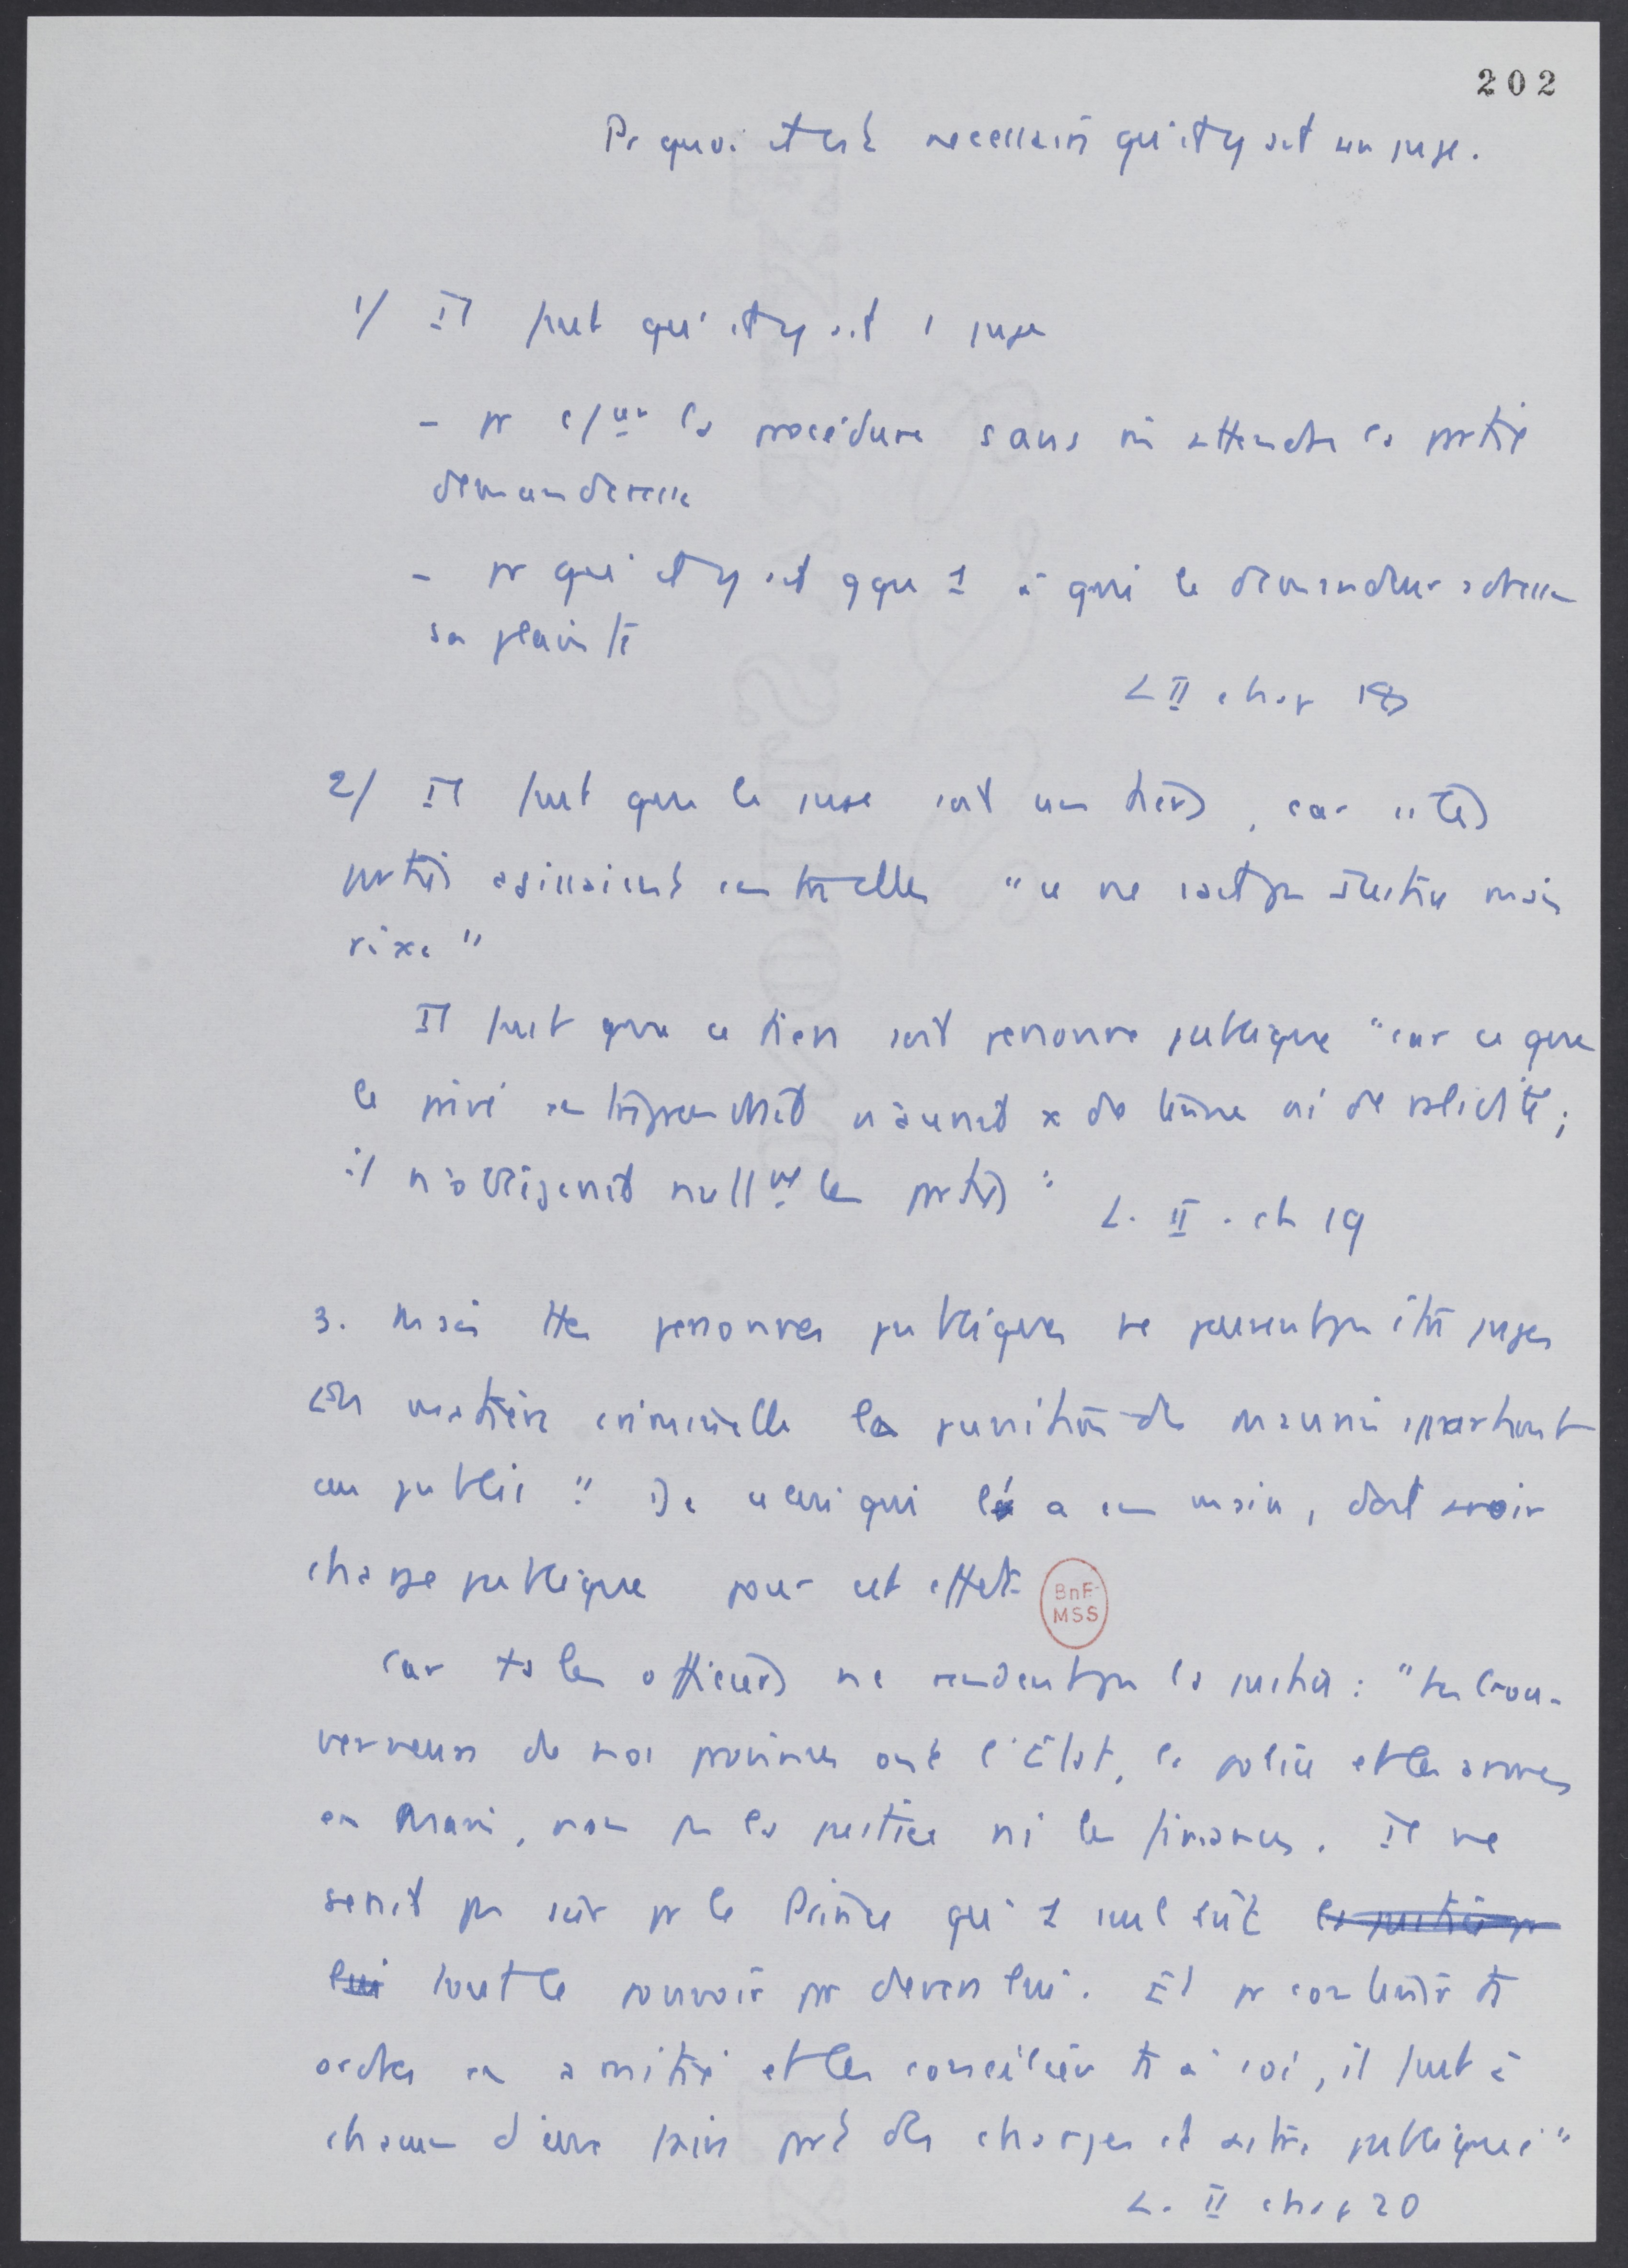 202
Pr quoi il est necessaire qu'il y ait un juge.
1/ Il faut qu'il y ait 1 juge
- pr la procédure sans attendre la partie
demanderesse
- pr qu'il y ait qque 1 à qui le demandeur adresse
sa plainte
L II chap 18
2/ Il faut que le juge soit un tiers, car si les
parties agissaient entre elles "ce ne serait pas Justice mais
rixe"
Il faut que ce tiers soit personne publique "car ce que
le privé entreprendrait n'aurait x de ni de validité;
il n'obligerait null<sup>mt</sup> les parties"
L. II. ch 19
3. Mais ttes personnes publiques ne peuvent pas être juges
En matière criminelle la punition des appartient
au public" De celui qui l'a en main, doit avoir
charge publique pour cet effet.
BnF
MSS
Car ts les officiers ne rendent pas la justice : "les Gou-
verneurs de nos provinces ont l'Etat, la police et les armes
en main, non pas la justice ni les finances. Il ne
serait pas sûr pr le Prince qu'1 seul eût la justice pr
lui tout le pouvoir par devers lui. Et pr contenir ts
ordres en amitié et les ts à soi, il faut à
chacun d'eux faire part des charges et publiques"
L. II chap 20